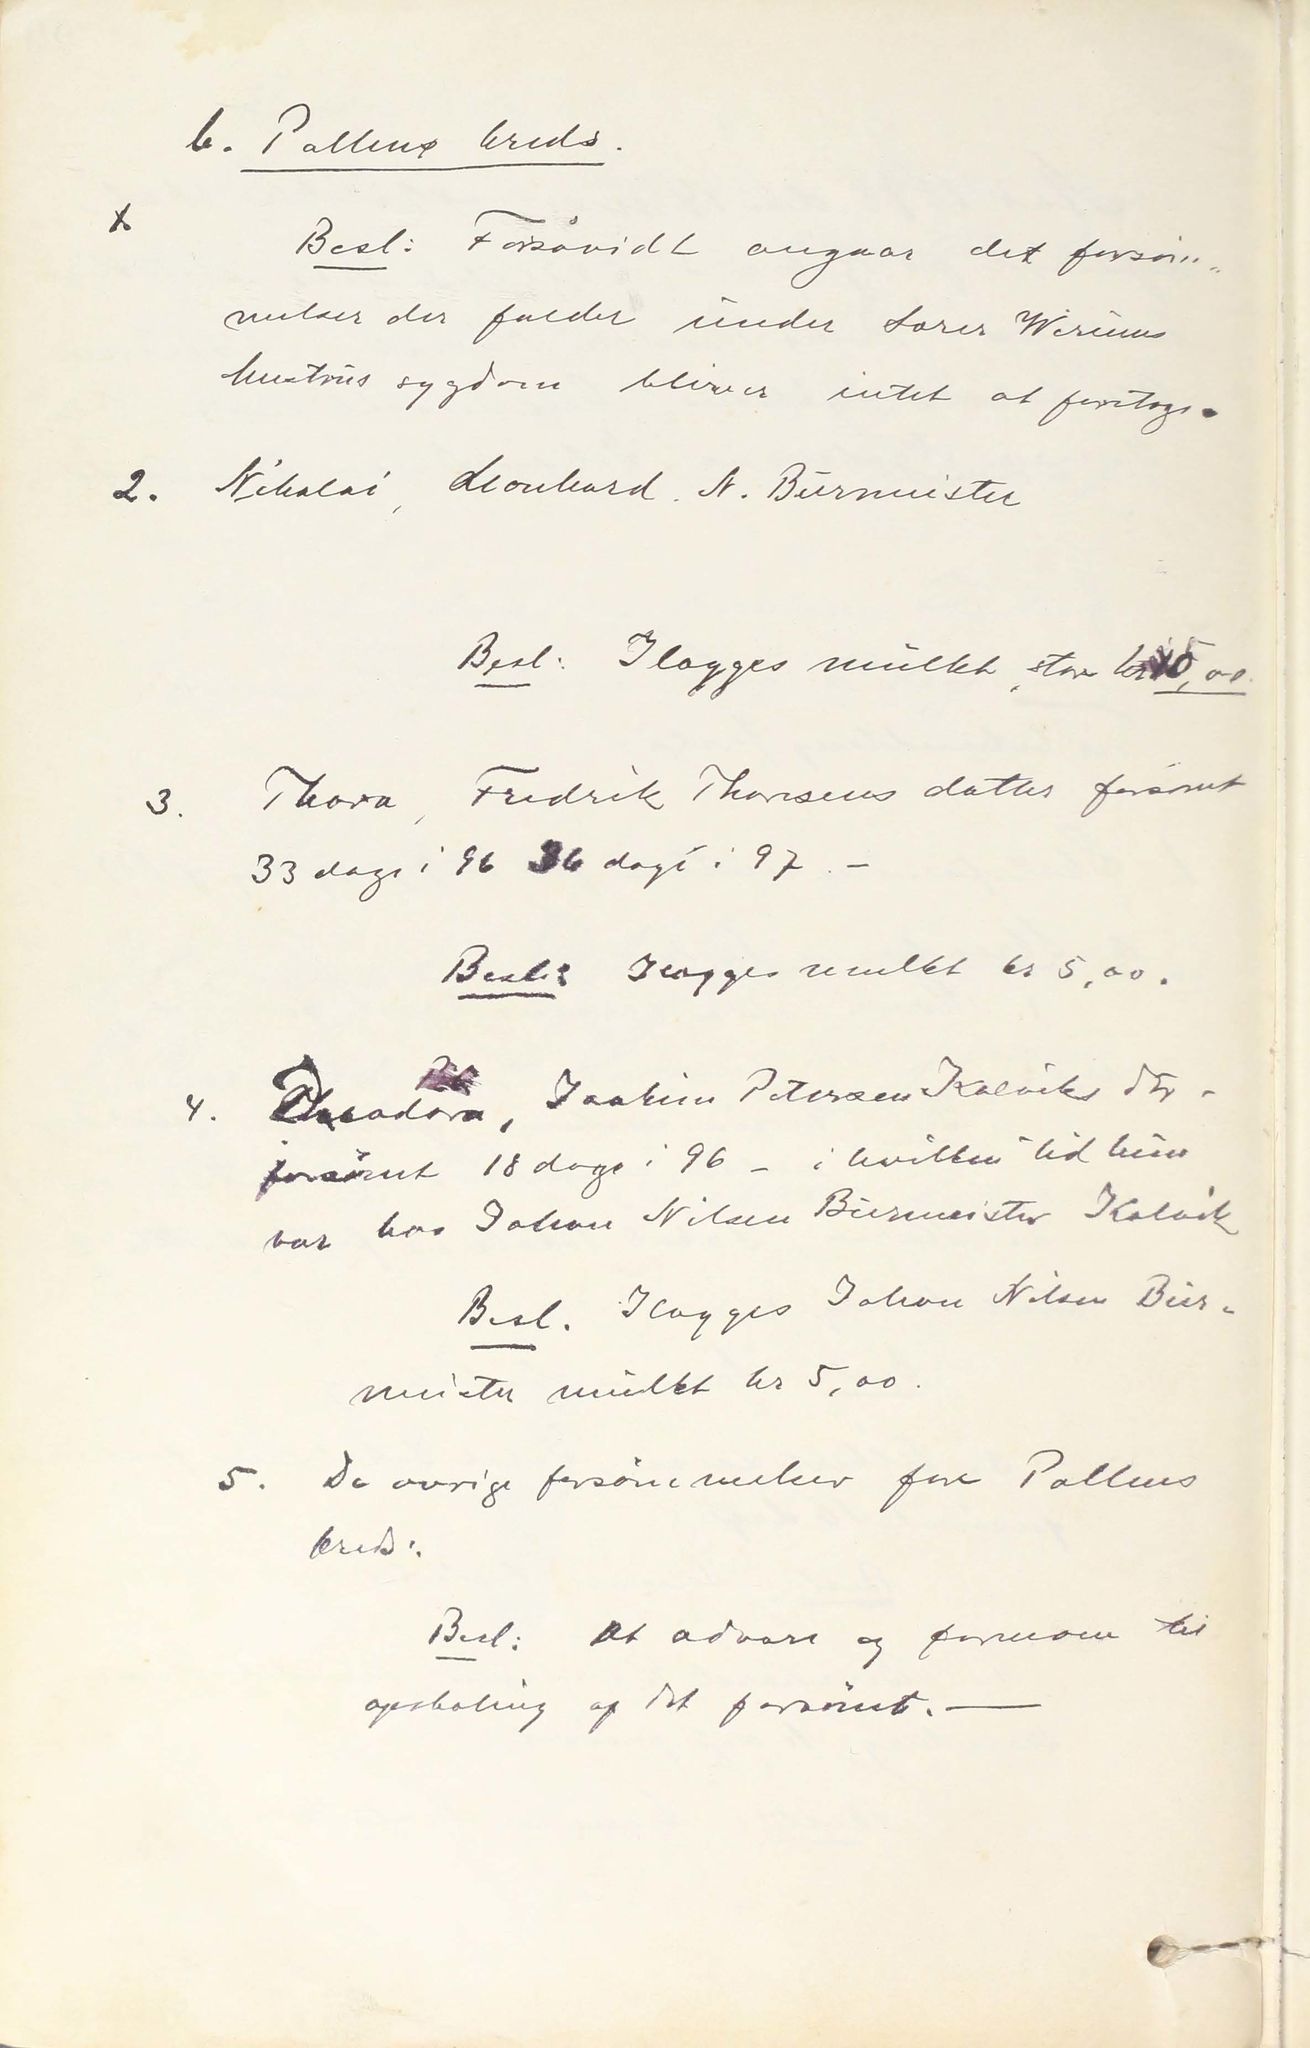 b. Pollens kreds.
1. Besl: Forsåvidt angaar det forsøm-
melser der falder under Lærer Weriuus
hustrus sygdom bliver intet at foretage.
2. Nikolai, Leonhard N. Burmeister
Besl: Ilægges mulkt, stor kr 5,00.
3. Thora, Fredrik Thomsens datter forsømt
33 dage i 96 36 dage i 97. –
Besl: Ilægges mulkt kr 5,00.
4. Theodora, Joakim Petersen Kalviks dtr -
forsømt 18 dage i 96 – i hvilken tid hun
var hos Johan Nilsen Burmeister Kalvik
Besl. Ilægges Johan Nilsen Bur-
meister mulkt kr 5,00.
5. De øvrige forsømmelser for Pollens
kreds:
Besl: At advare og formane til
opholing af det forsømte. —